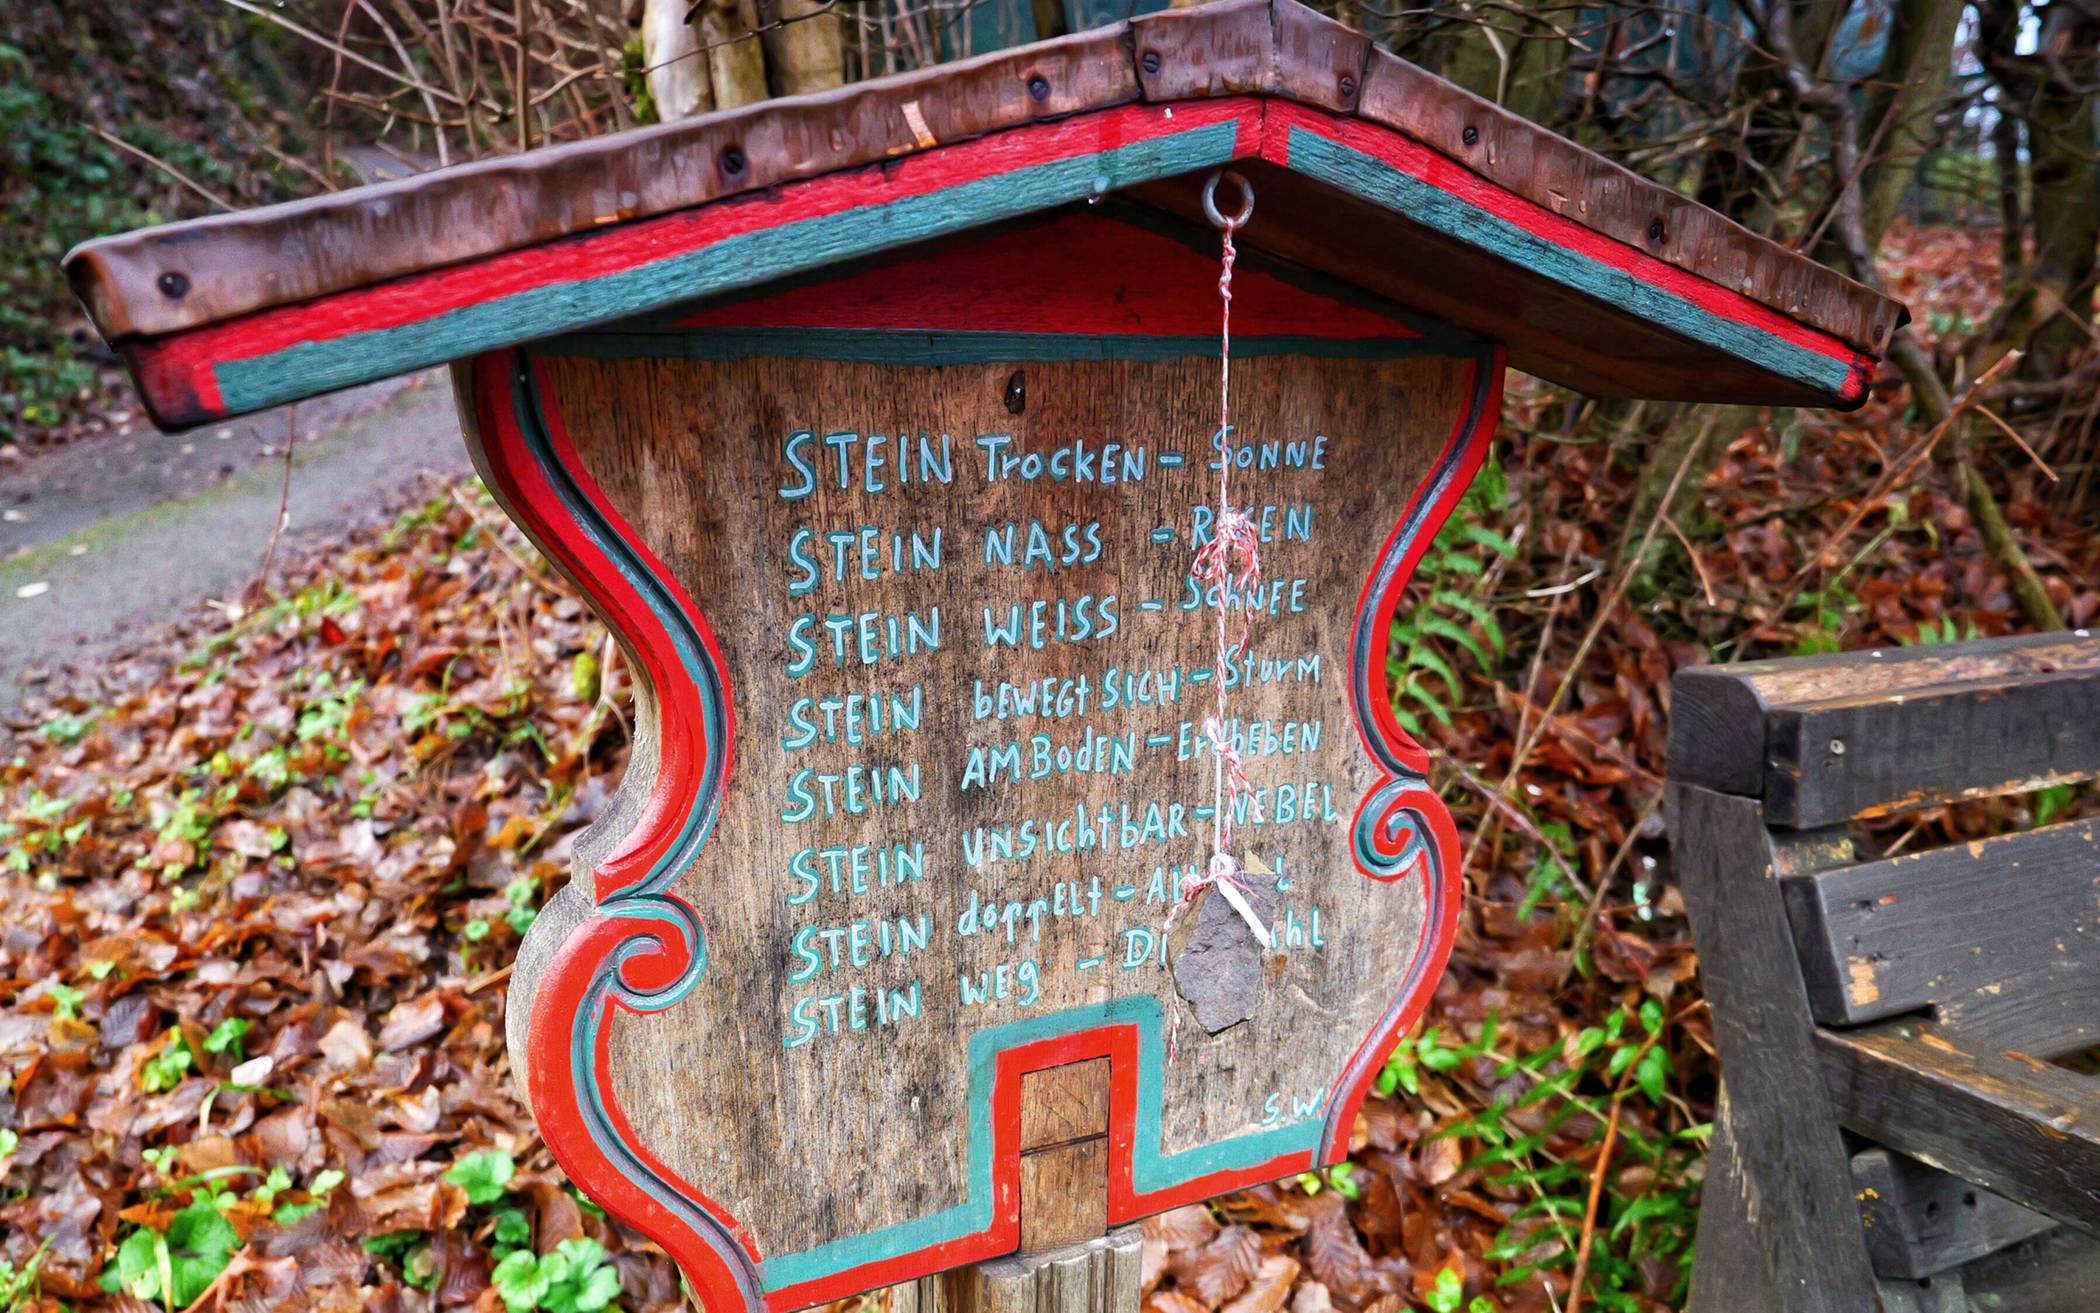 STEIN TrockEN - SONNE
STEIN NASS - REGEN
STEIN WEISS - SchNEE
STEIN bEWEGt SICH - Sturm
STEIN AM BodEN - ErdbEbEN
STEIN UNSIchtbAR - NEBEL
STEIN doppELt -
STEIN WEg -
S.W.